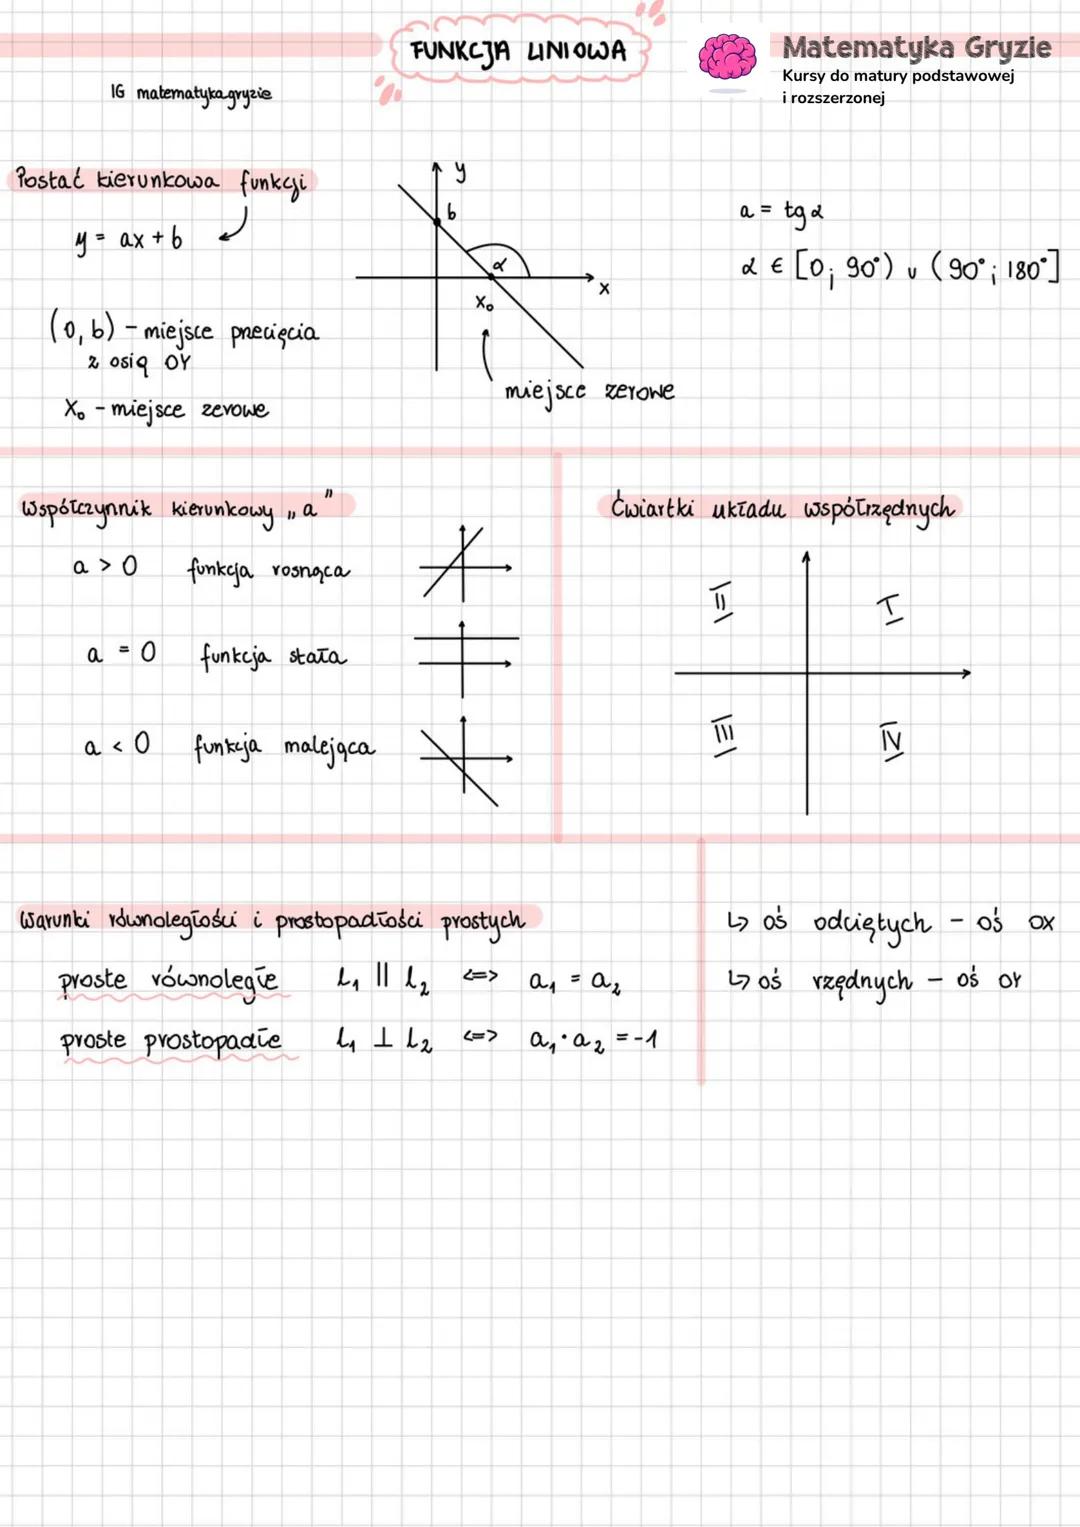 FUNKCJA LINIOWA
Matematyka Gryzie
Kursy do matury podstawowej
i rozszerzonej
IG matematyka.gryzie
Postać kierunkowa funkcji
y = ax + b
(0, b) - miejsce precięcia
z osią OY
x₀ - miejsce zerowe
y
b
α
x
x₀
miejsce zerowe
a = tg α
α ∈ [0; 90°) ∪ (90°; 180°]
Współczynnik kierunkowy „a"
a > 0 funkcja rosnąca
a = 0 funkcja stała
a < 0 funkcja malejąca
Ćwiartki układu współrzędnych
II I
III IV
Warunki równoległości i prostopadłości prostych
proste równoległe L₁ || L₂ <=> a₁ = a₂
proste prostopadłe L₁ ⊥ L₂ <=> a₁ · a₂ = -1
↳ oś odciętych - oś OX
↳ oś rzędnych - oś OY